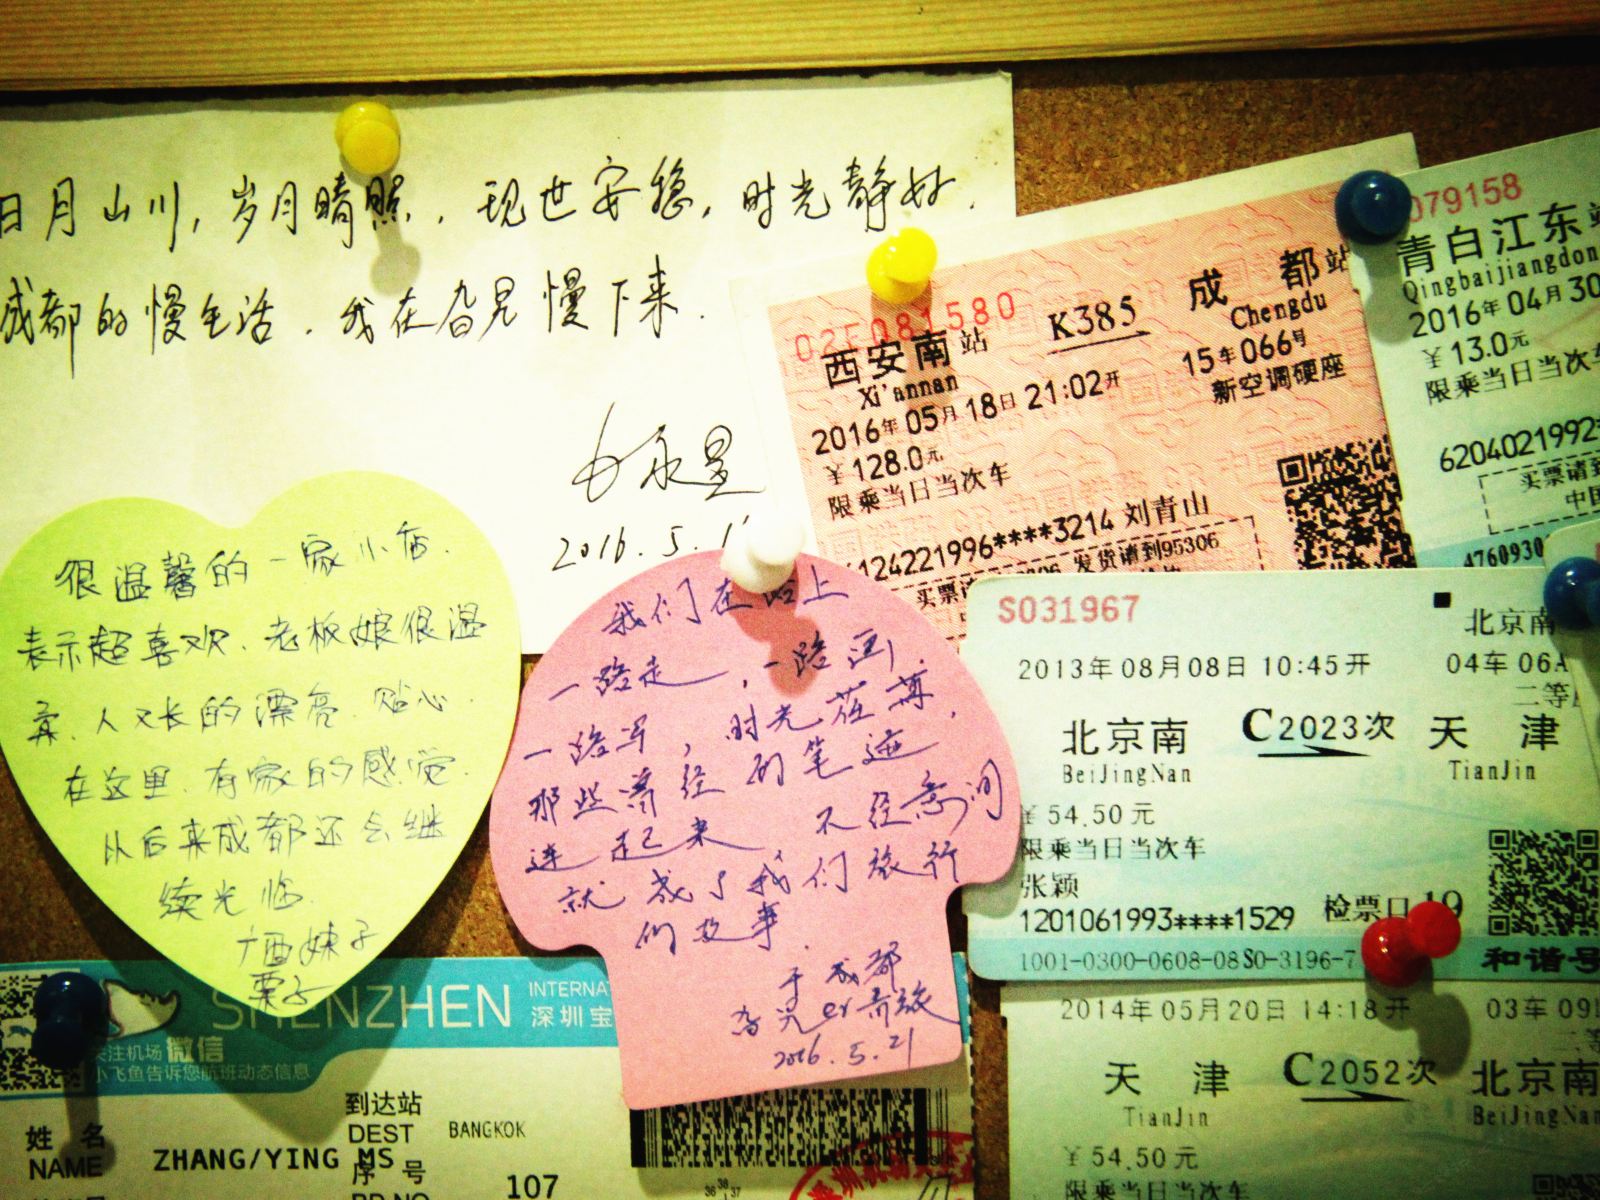 日月山川，岁月晴照，现世安稳，时光静好．
成都的慢生活．我在杳晃慢下来．
2016.5.1
很温馨的一家小店．
表示超喜欢．老板娘很温
柔．人又长的漂亮．贴心．
在这里．有家的感觉．
以后来成都还会继
续光临．
广西妹子
栗子
我们在路上
一路走，一路画，
一路写，时光荏苒，
那些曾经的笔迹
连起来 不经意间
就成了我们旅行
们故事．
于成都
2016.5.21
02E081580
西安南站 K385 成都站
Xi'annan Chengdu
2016年05月18日21:02开 15车066号
¥128.0元 新空调硬座
限乘当日当次车
124221996****3214 刘青山
发货请到95306
079158
青白江东
Qingbaijiangdon
2016年04月30
¥13.0元
限乘当日当次车
6204021992*
买票请到
中国
4760930
S031967 北京南
2013年08月08日10:45开 04车06A
二等
北京南 C2023次 天津
BeiJingNan TianJin
¥54.50元
限乘当日当次车
张颖
1201061993****1529 检票口19
1001-0300-0608-08S0-3196-7 和谐号
2014年05月20日14:18开 03车09
天津 C2052次 北京南
TianJin BeiJingNan
¥54.50元
限乘当日当次车
SHENZHEN INTERNA
深圳宝
关注机场 微信
小飞鱼告诉您航班动态信息
姓名 到达站
NAME DEST BANGKOK
ZHANG/YING MS 序号
BD NO 107